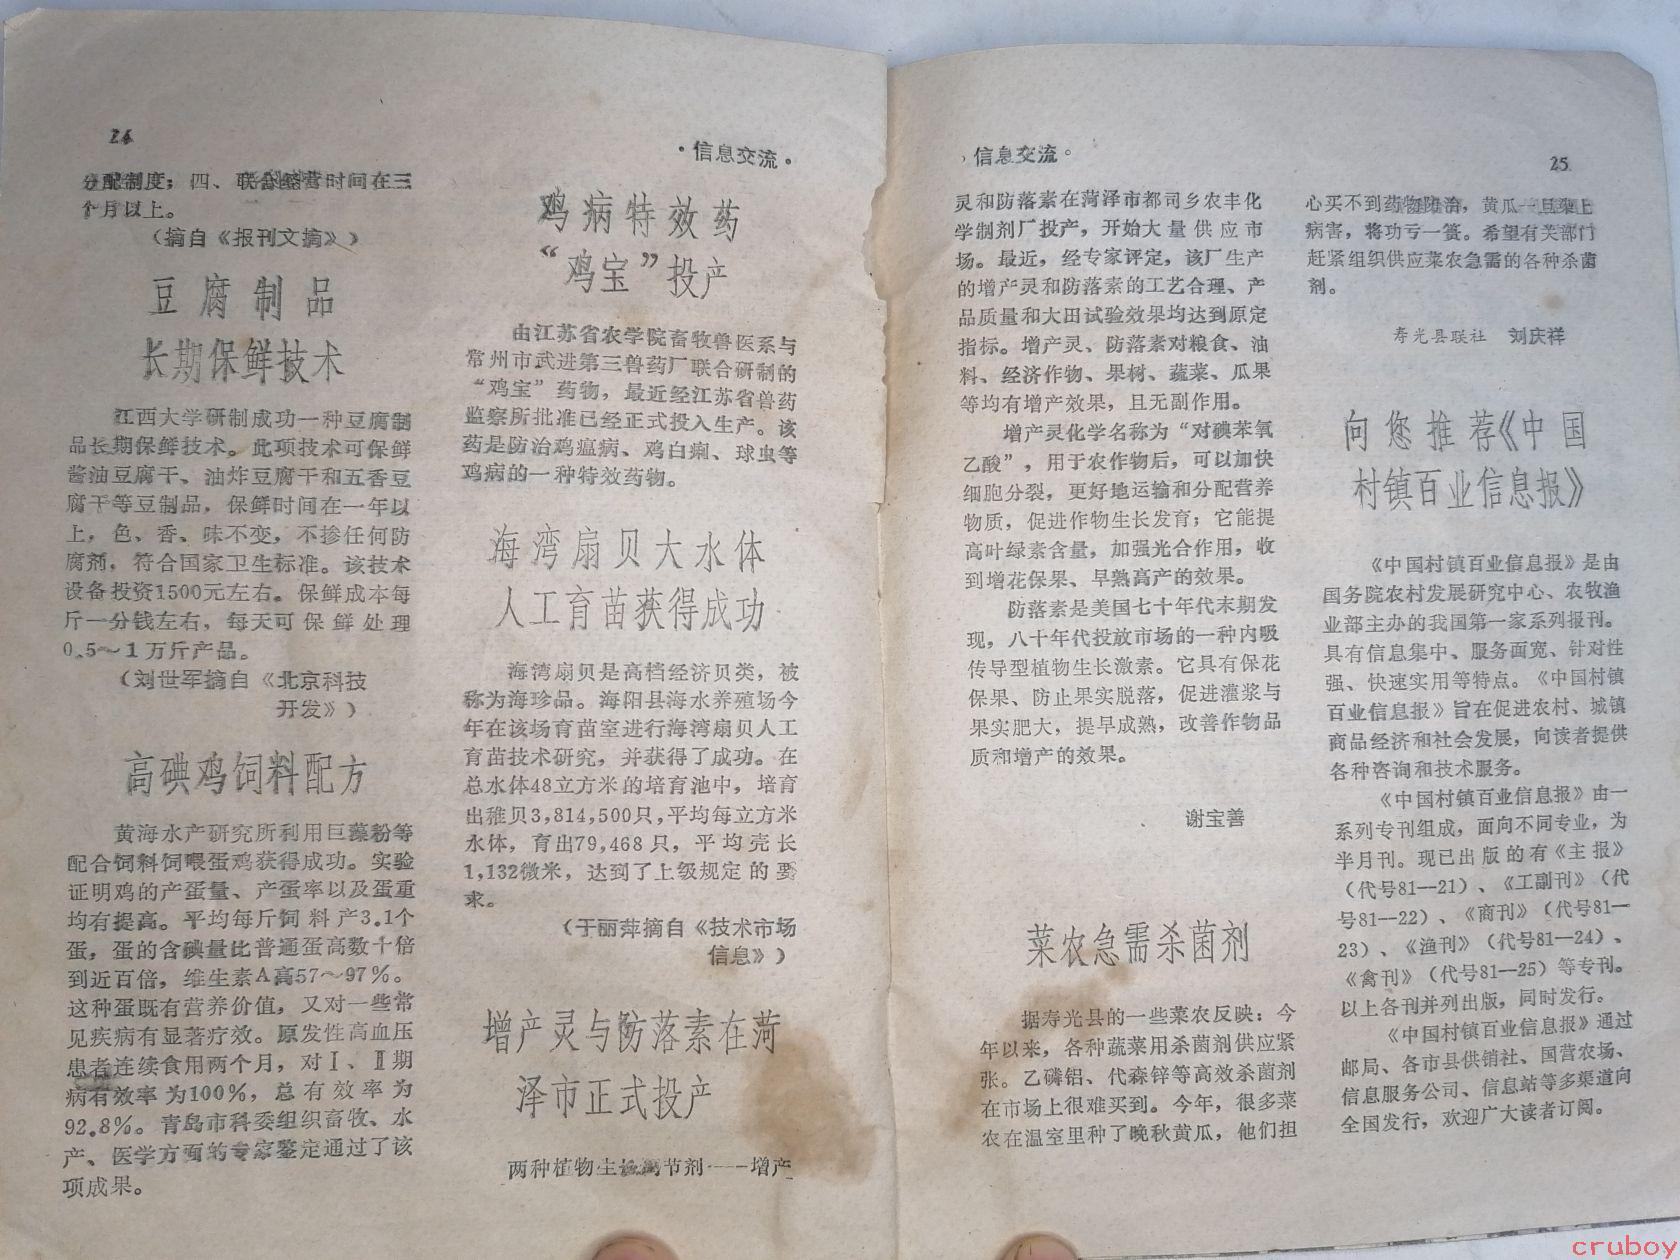 24
·信息交流·
分配制度；四、联合经营时间在三
个月以上。
（摘自《报刊文摘》）
豆腐制品
长期保鲜技术
江西大学研制成功一种豆腐制
品长期保鲜技术。此项技术可保鲜
酱油豆腐干、油炸豆腐干和五香豆
腐干等豆制品，保鲜时间在一年以
上，色、香、味不变，不掺任何防
腐剂，符合国家卫生标准。该技术
设备投资1500元左右。保鲜成本每
斤一分钱左右，每天可保鲜处理
0.5～1万斤产品。
（刘世军摘自《北京科技
开发》）
高碘鸡饲料配方
黄海水产研究所利用巨藻粉等
配合饲料饲喂蛋鸡获得成功。实验
证明鸡的产蛋量、产蛋率以及蛋重
均有提高。平均每斤饲料产3.1个
蛋，蛋的含碘量比普通蛋高数十倍
到近百倍，维生素A高57～97%。
这种蛋既有营养价值，又对一些常
见疾病有显著疗效。原发性高血压
患者连续食用两个月，对Ⅰ、Ⅱ期
病有效率为100%，总有效率为
92.8%。青岛市科委组织畜牧、水
产、医学方面的专家鉴定通过了该
项成果。
鸡病特效药
“鸡宝”投产
由江苏省农学院畜牧兽医系与
常州市武进第三兽药厂联合研制的
“鸡宝”药物，最近经江苏省兽药
监察所批准已经正式投入生产。该
药是防治鸡瘟病、鸡白痢、球虫等
鸡病的一种特效药物。
海湾扇贝大水体
人工育苗获得成功
海湾扇贝是高档经济贝类，被
称为海珍品。海阳县海水养殖场今
年在该场育苗室进行海湾扇贝人工
育苗技术研究，并获得了成功。在
总水体48立方米的培育池中，培育
出稚贝3,814,500只，平均每立方米
水体，育出79,468只，平均壳长
1,132微米，达到了上级规定的要
求。
（于丽萍摘自《技术市场
信息》）
增产灵与防落素在菏
泽市正式投产
两种植物生长调节剂——增产
·信息交流。
25
灵和防落素在菏泽市都司乡农丰化
学制剂厂投产，开始大量供应市
场。最近，经专家评定，该厂生产
的增产灵和防落素的工艺合理、产
品质量和大田试验效果均达到原定
指标。增产灵、防落素对粮食、油
料、经济作物、果树、蔬菜、瓜果
等均有增产效果，且无副作用。
增产灵化学名称为“对碘苯氧
乙酸”，用于农作物后，可以加快
细胞分裂，更好地运输和分配营养
物质，促进作物生长发育；它能提
高叶绿素含量，加强光合作用，收
到增花保果、早熟高产的效果。
防落素是美国七十年代末期发
现，八十年代投放市场的一种内吸
传导型植物生长激素。它具有保花
保果、防止果实脱落，促进灌浆与
果实肥大，提早成熟，改善作物品
质和增产的效果。
谢宝善
菜农急需杀菌剂
据寿光县的一些菜农反映：今
年以来，各种蔬菜用杀菌剂供应紧
张。乙磷铝、代森锌等高效杀菌剂
在市场上很难买到。今年，很多菜
农在温室里种了晚秋黄瓜，他们担
心买不到药物防治，黄瓜一旦染上
病害，将功亏一篑。希望有关部门
赶紧组织供应菜农急需的各种杀菌
剂。
寿光县联社 刘庆祥
向您推荐《中国
村镇百业信息报》
《中国村镇百业信息报》是由
国务院农村发展研究中心、农牧渔
业部主办的我国第一家系列报刊。
具有信息集中、服务面宽、针对性
强、快速实用等特点。《中国村镇
百业信息报》旨在促进农村、城镇
商品经济和社会发展，向读者提供
各种咨询和技术服务。
《中国村镇百业信息报》由一
系列专刊组成，面向不同专业，为
半月刊。现已出版的有《主报》
（代号81—21）、《工副刊》（代
号81—22）、《商刊》（代号81—
23）、《渔刊》（代号81—24）、
《禽刊》（代号81—25）等专刊。
以上各刊并列出版，同时发行。
《中国村镇百业信息报》通过
邮局、各市县供销社、国营农场、
信息服务公司、信息站等多渠道向
全国发行，欢迎广大读者订阅。
cruboy